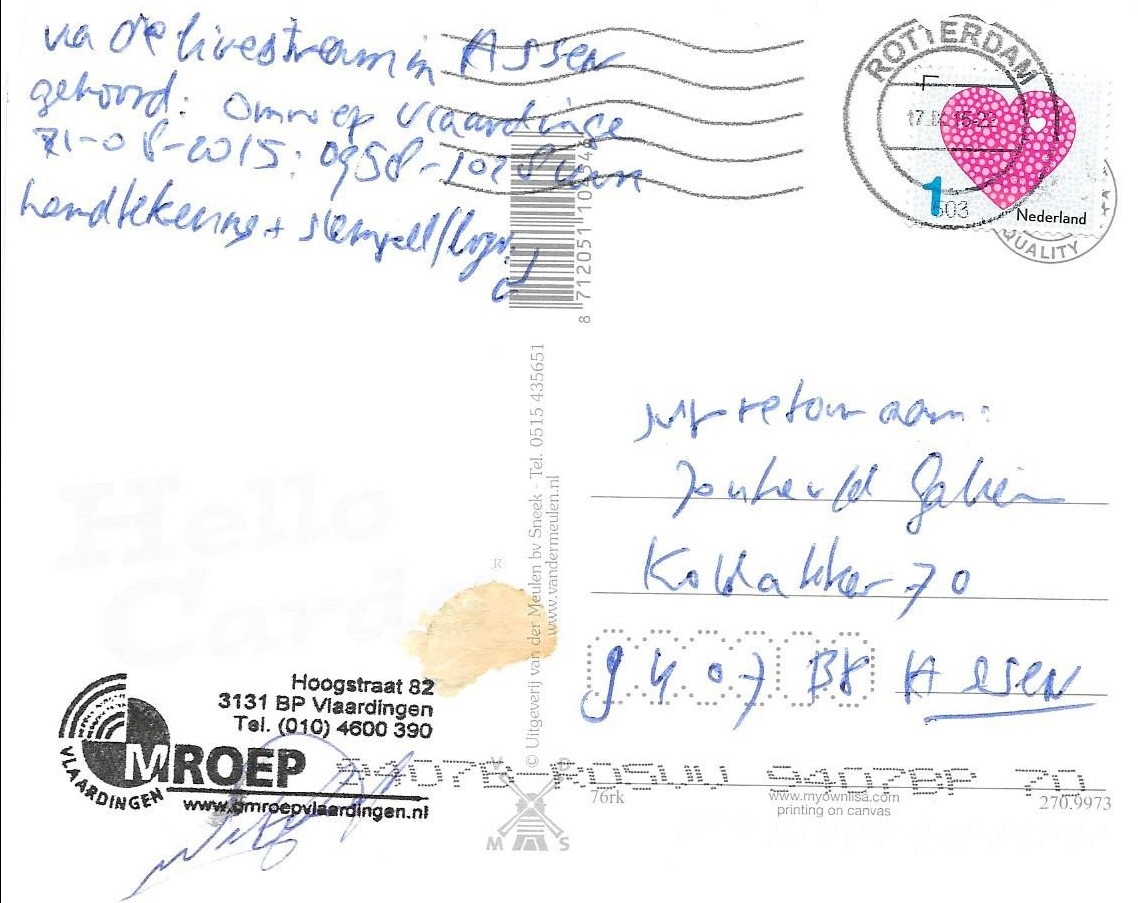 via de livestream in Assen
gehoord: Omroep Vlaardinge
21-08-2015: 0958-1028 uur
handtekening + stempel/logo
ROTTERDAM
1
Nederland
QUALITY
8 712051 10
© Uitgeverij van der Meulen bv Sneek - Tel. 0515 435651
www.vandermeulen.nl
Hello
Card
®
svp retour aan:
70
9407 BP Assen
Hoogstraat 82
3131 BP Vlaardingen
Tel. (010) 4600 390
OMROEP
VLAARDINGEN
www.omroepvlaardingen.nl
9407BP 70
76rk
www.myownlisa.com
printing on canvas
270.9973
M S